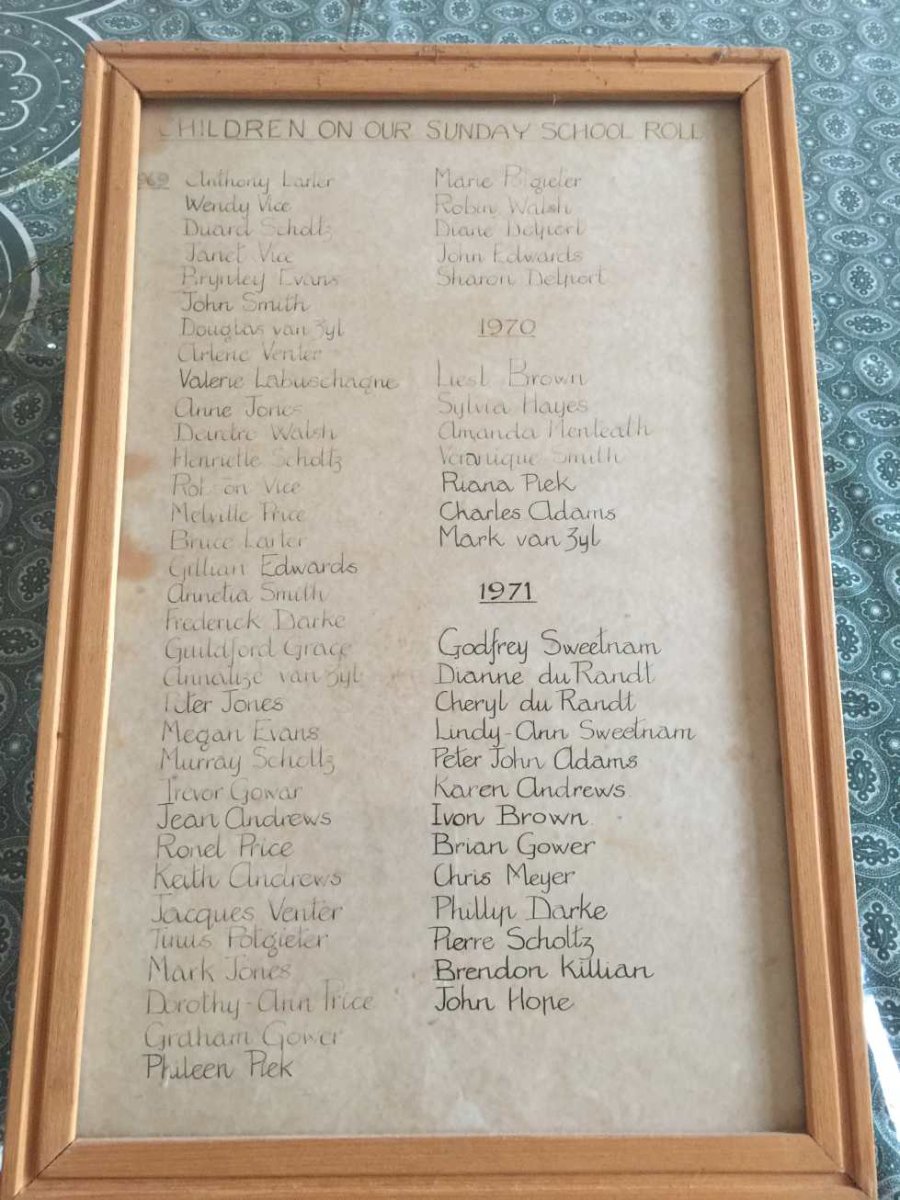 CHILDREN ON OUR SUNDAY SCHOOL ROLL
1969 Anthony Larter
Wendy Vice
Duard Scholtz
Janet Vice
Brynley Evans
John Smith
Douglas van Zyl
Arlene Venter
Valerie Labuschagne
Anne Jones
Deirdre Walsh
Henriette Scholtz
Robson Vice
Melville Price
Bruce Larter
Gillian Edwards
Annetia Smith
Frederick Darke
Guildford Grace
Annalize van Zyl
Peter Jones
Megan Evans
Murray Scholtz
Trevor Gowar
Jean Andrews
Ronel Price
Keith Andrews
Jacques Venter
Tinus Potgieter
Mark Jones
Dorothy-Ann Price
Graham Gower
Phileen Piek
Marie Potgieter
Robin Walsh
Diane Delport
John Edwards
Sharon Delport
1970
Liesl Brown
Sylvia Hayes
Amanda Menteath
Veronique Smith
Riana Piek
Charles Adams
Mark van Zyl
1971
Godfrey Sweetnam
Dianne du Randt
Cheryl du Randt
Lindy-Ann Sweetnam
Peter John Adams
Karen Andrews
Ivon Brown
Brian Gower
Chris Meyer
Phillyp Darke
Pierre Scholtz
Brendon Killian
John Hope